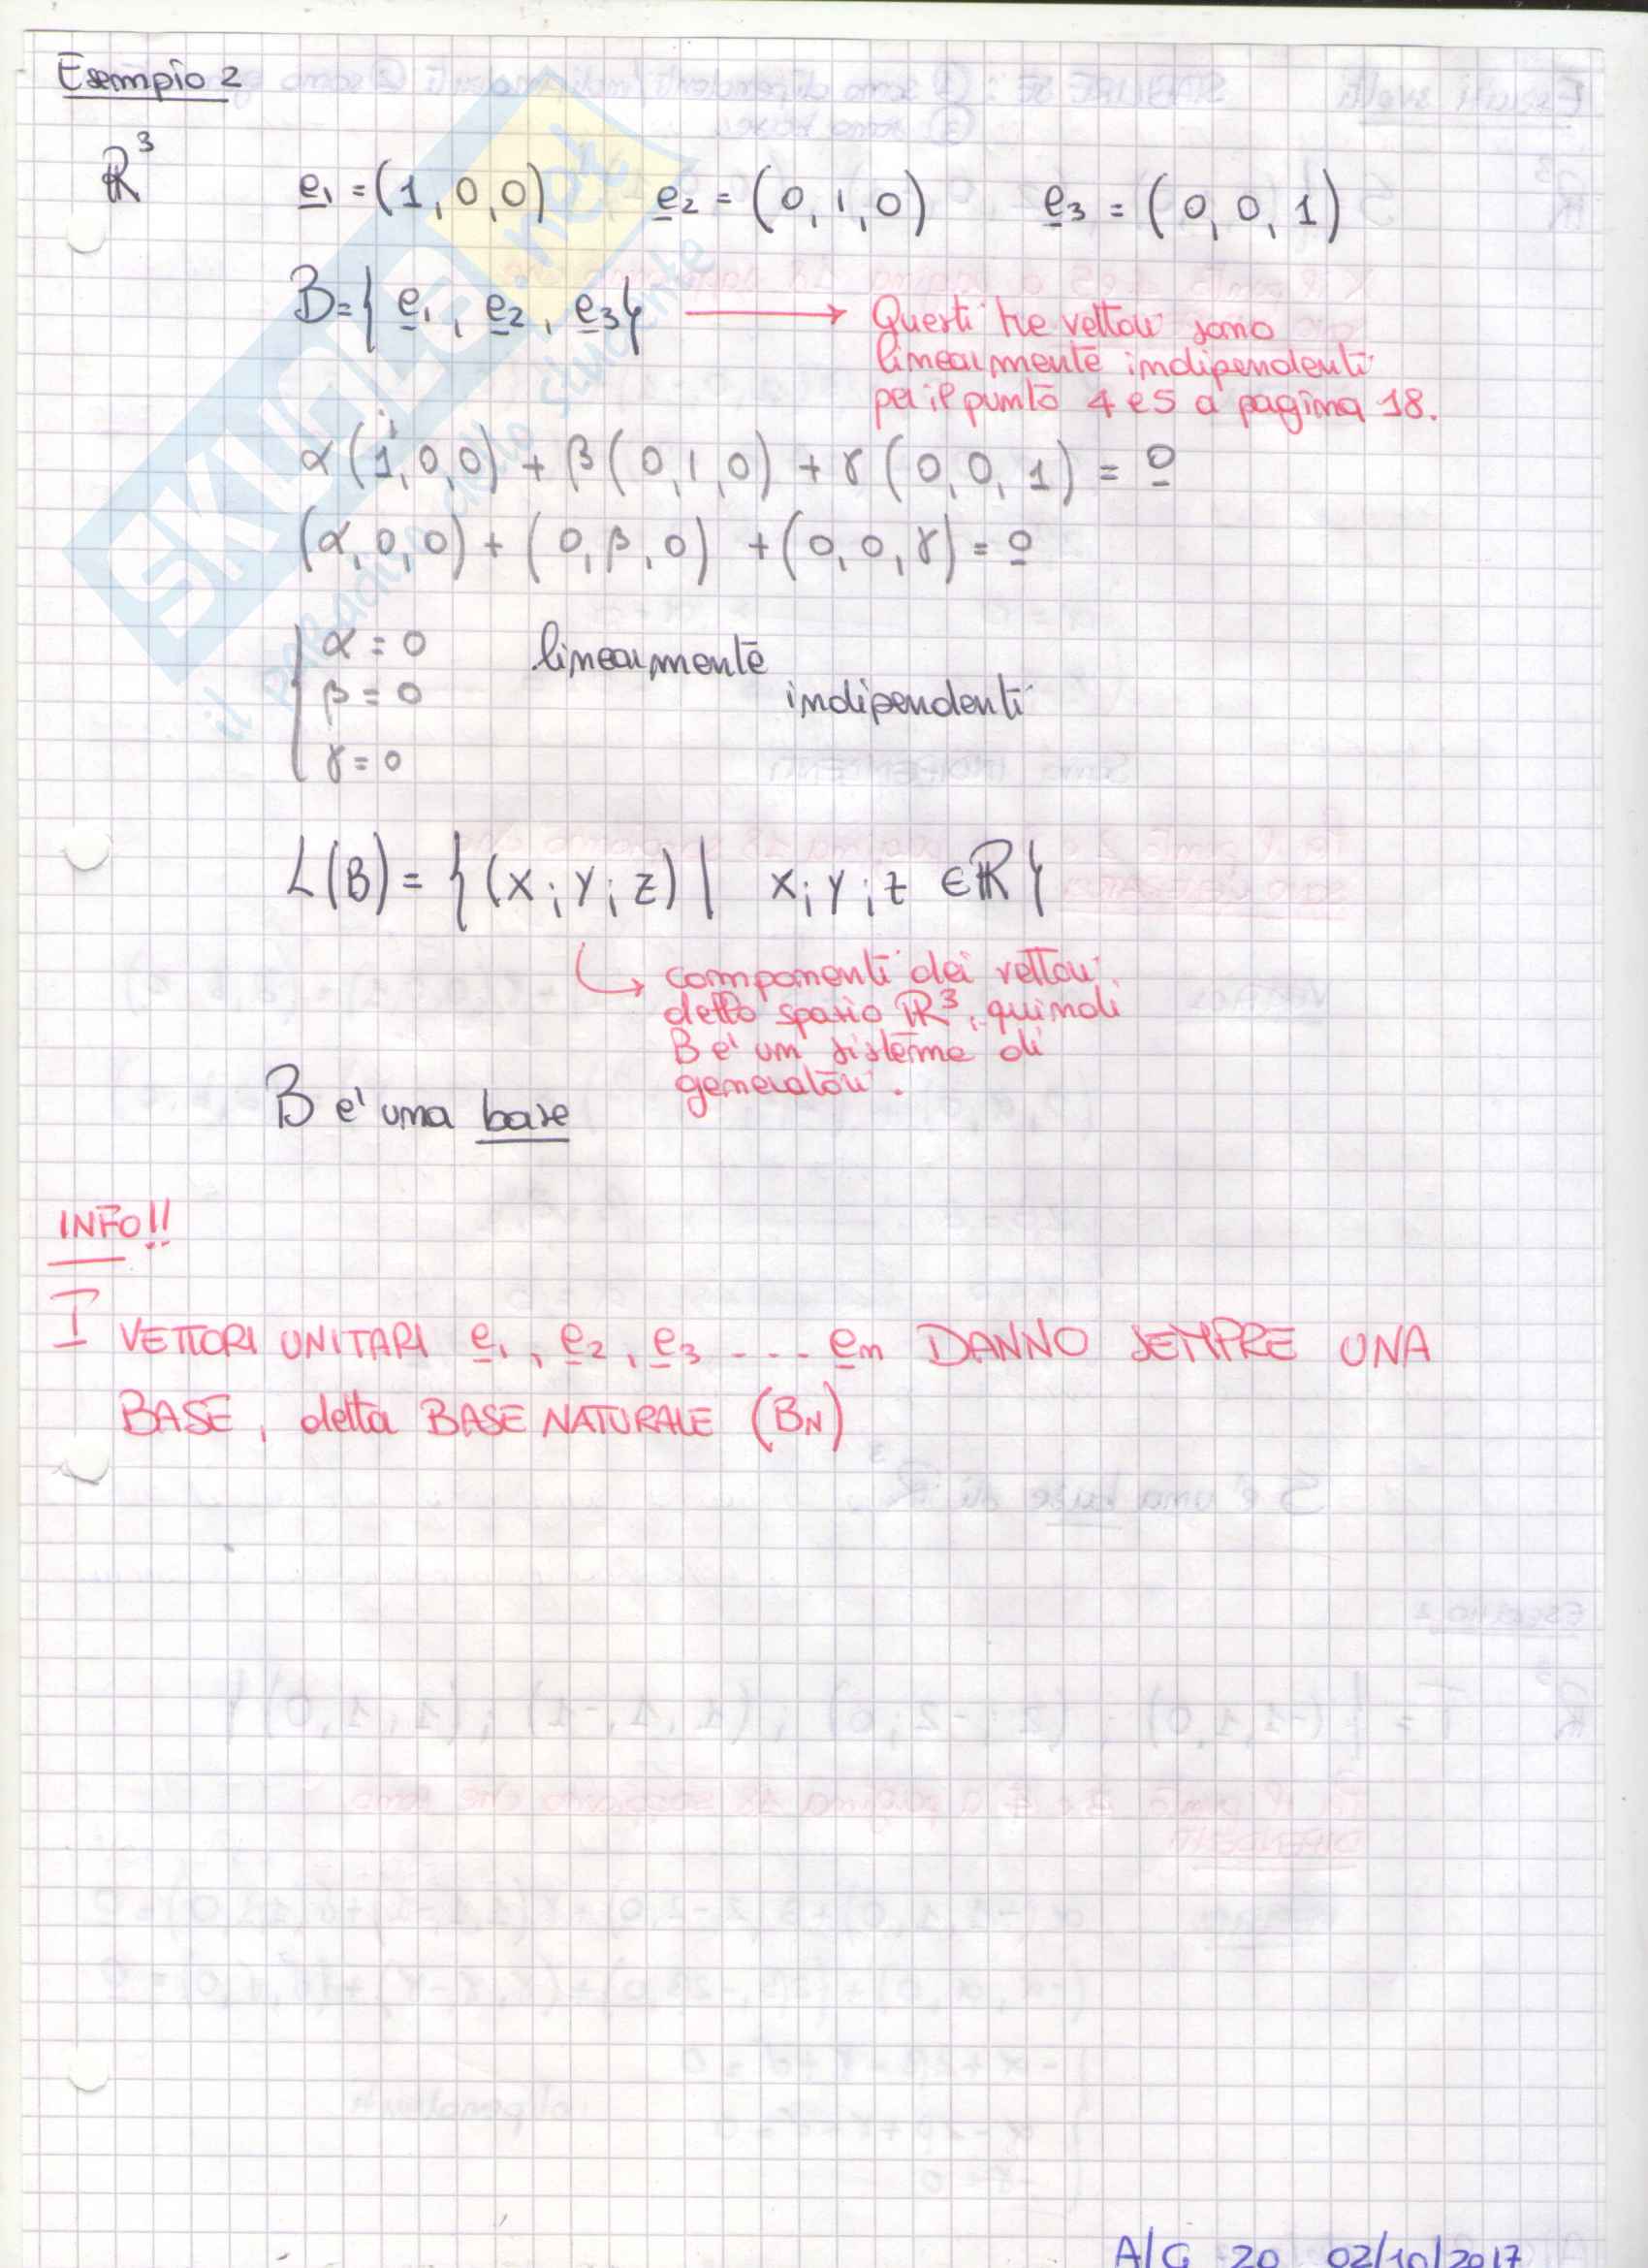 Esempio 2
R³ e₁ = (1, 0, 0) e₂ = (0, 1, 0) e₃ = (0, 0, 1)
B = { e₁, e₂, e₃ } → Questi tre vettori sono
linearmente indipendenti
per il punto 4 e 5 a pagina 18.
α (1, 0, 0) + β (0, 1, 0) + γ (0, 0, 1) = 0
(α, 0, 0) + (0, β, 0) + (0, 0, γ) = 0
α = 0 linearmente
β = 0 indipendenti
γ = 0
L(B) = { (x; y; z) | x; y; z ∈ R }
componenti dei vettori
dello spazio R³, quindi
B e' un sistema di
generatori.
B e' una base
INFO!!
I VETTORI UNITARI e₁, e₂, e₃ ... en DANNO SEMPRE UNA
BASE, detta BASE NATURALE (BN)
A/G 20 02/10/2017
SKUOLA.net
il PARadiso dello studente